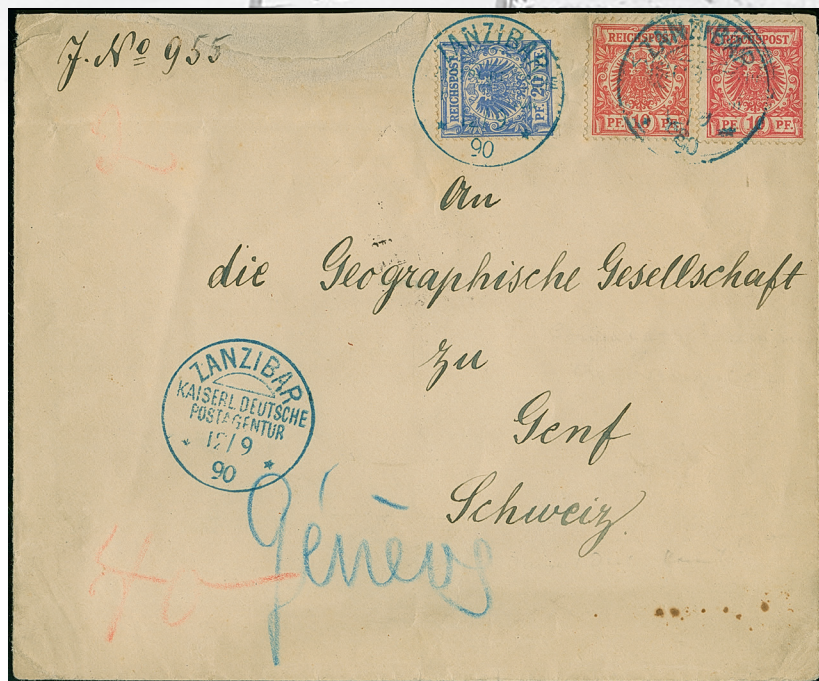 J. No 955
ZANZIBAR
90
REICHSPOST
PF. 20
ZANZIBAR
90
REICHSPOST
PF. 10 PF.
REICHSPOST
PF. 10 PF.
An
die Geographische Gesellschaft
zu
Genf
Schweiz
ZANZIBAR
KAISERL. DEUTSCHE
POSTAGENTUR
12/9
90
Génève
40